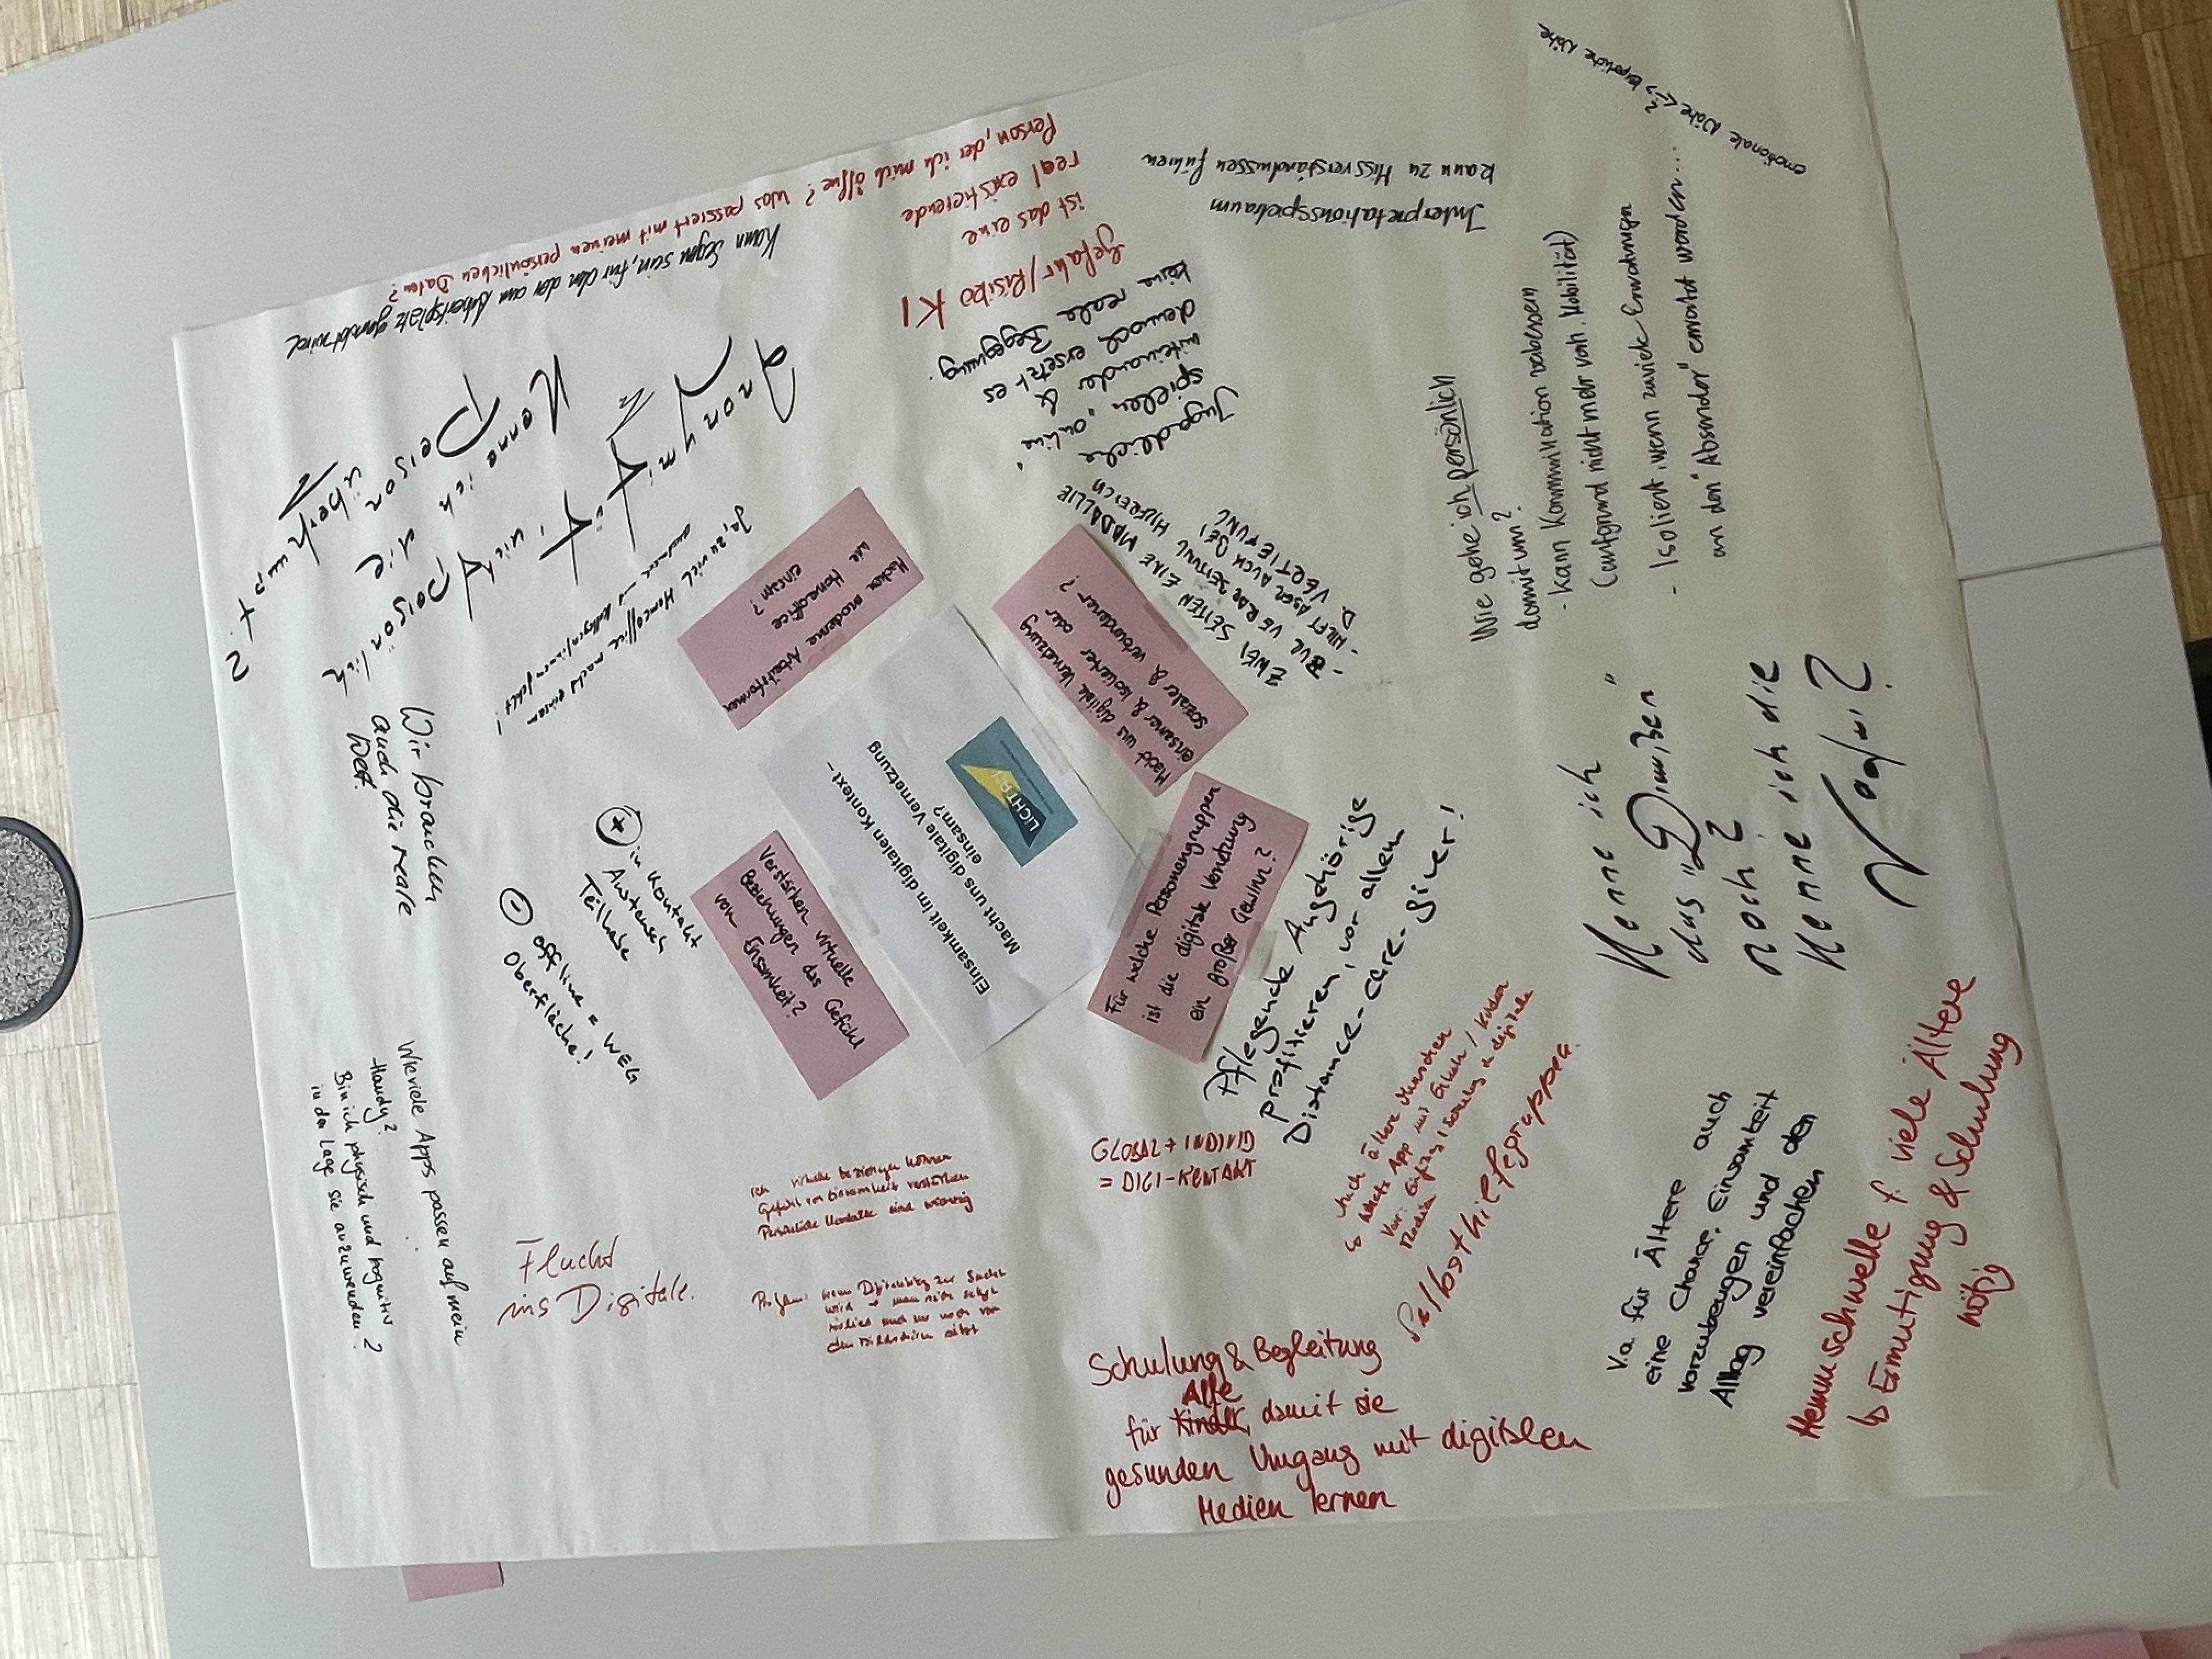 Einsamkeit im digitalen Kontext –
Macht uns digitale Vernetzung
einsam?
LICHTBLICK
Machen moderne Arbeitsformen
wie Homeoffice
einsam?
Ja, zu viel Homeoffice macht einsam
Macht uns digitale Vernetzung
einsamer & isolierter oder
sozialer & verbundener?
ZWEI SEITEN EINE MADALLIE
HILFT ABER AUCH BEI
D. VERTIEFUNG
Für welche Personengruppen
ist die digitale Vernetzung
ein großer Gewinn?
Pflegende Angehörige
profitieren, vor allem
Distance-care-giver!
Verstärken virtuelle
Beziehungen das Gefühl
von Einsamkeit?
+ in Kontakt
Austausch
Teilhabe
- offline = WEG
Oberfläche!
Wir brauchen
auch die reale
Welt.
Wieviele Apps passen auf mein
Handy?
Bin ich physisch und kognitiv
in der Lage sie anzuwenden?
Flucht
ins Digitale.
virtuelle Beziehungen können
Gefühl von Einsamkeit verstärken
Persönliche Kontakte sind wichtig
wenn Digitalisierung zur Sucht
wird + man sich selbst
isoliert und nur noch vor
dem Bildschirm sitzt
GLOBAL + INDIVID
= DIGI-KONTAKT
Auch ältere Menschen
Selbsthilfegruppen
Schulung & Begleitung
Alle
für Kinder, damit sie
gesunden Umgang mit digitalen
Medien lernen
V.a. für Ältere auch
eine Chance, Einsamkeit
vorzubeugen und den
Alltag vereinfachen
Hemmschwelle f. viele Ältere
↳ Ermutigung & Schulung
nötig
Kenne ich
das "Draußen"
noch?
Kenne ich die
Natur?
Wie gehe ich persönlich
damit um?
- Kann Kommunikation verbessern
(aufgrund nicht mehr vorh. Mobilität)
- Isoliert, wenn zuviele Erwartungen
an den "Absender" erwartet werden...
emotionale Nähe <=> körperliche Nähe
Interpretationsspielraum
kann zu Missverständnissen führen
Jugendliche
spielen "online"
miteinander &
dennoch ersetzt es
keine reale Begegnung.
Gefahr/Risiko KI
ist das eine
real existierende
Person, der ich mich öffne? Was passiert mit meinen persönlichen Daten?
Kann Segen sein, für den der am Arbeitsplatz gemobbt wird.
Anonymität,
Kenne ich die
Person persönlich
überhaupt?